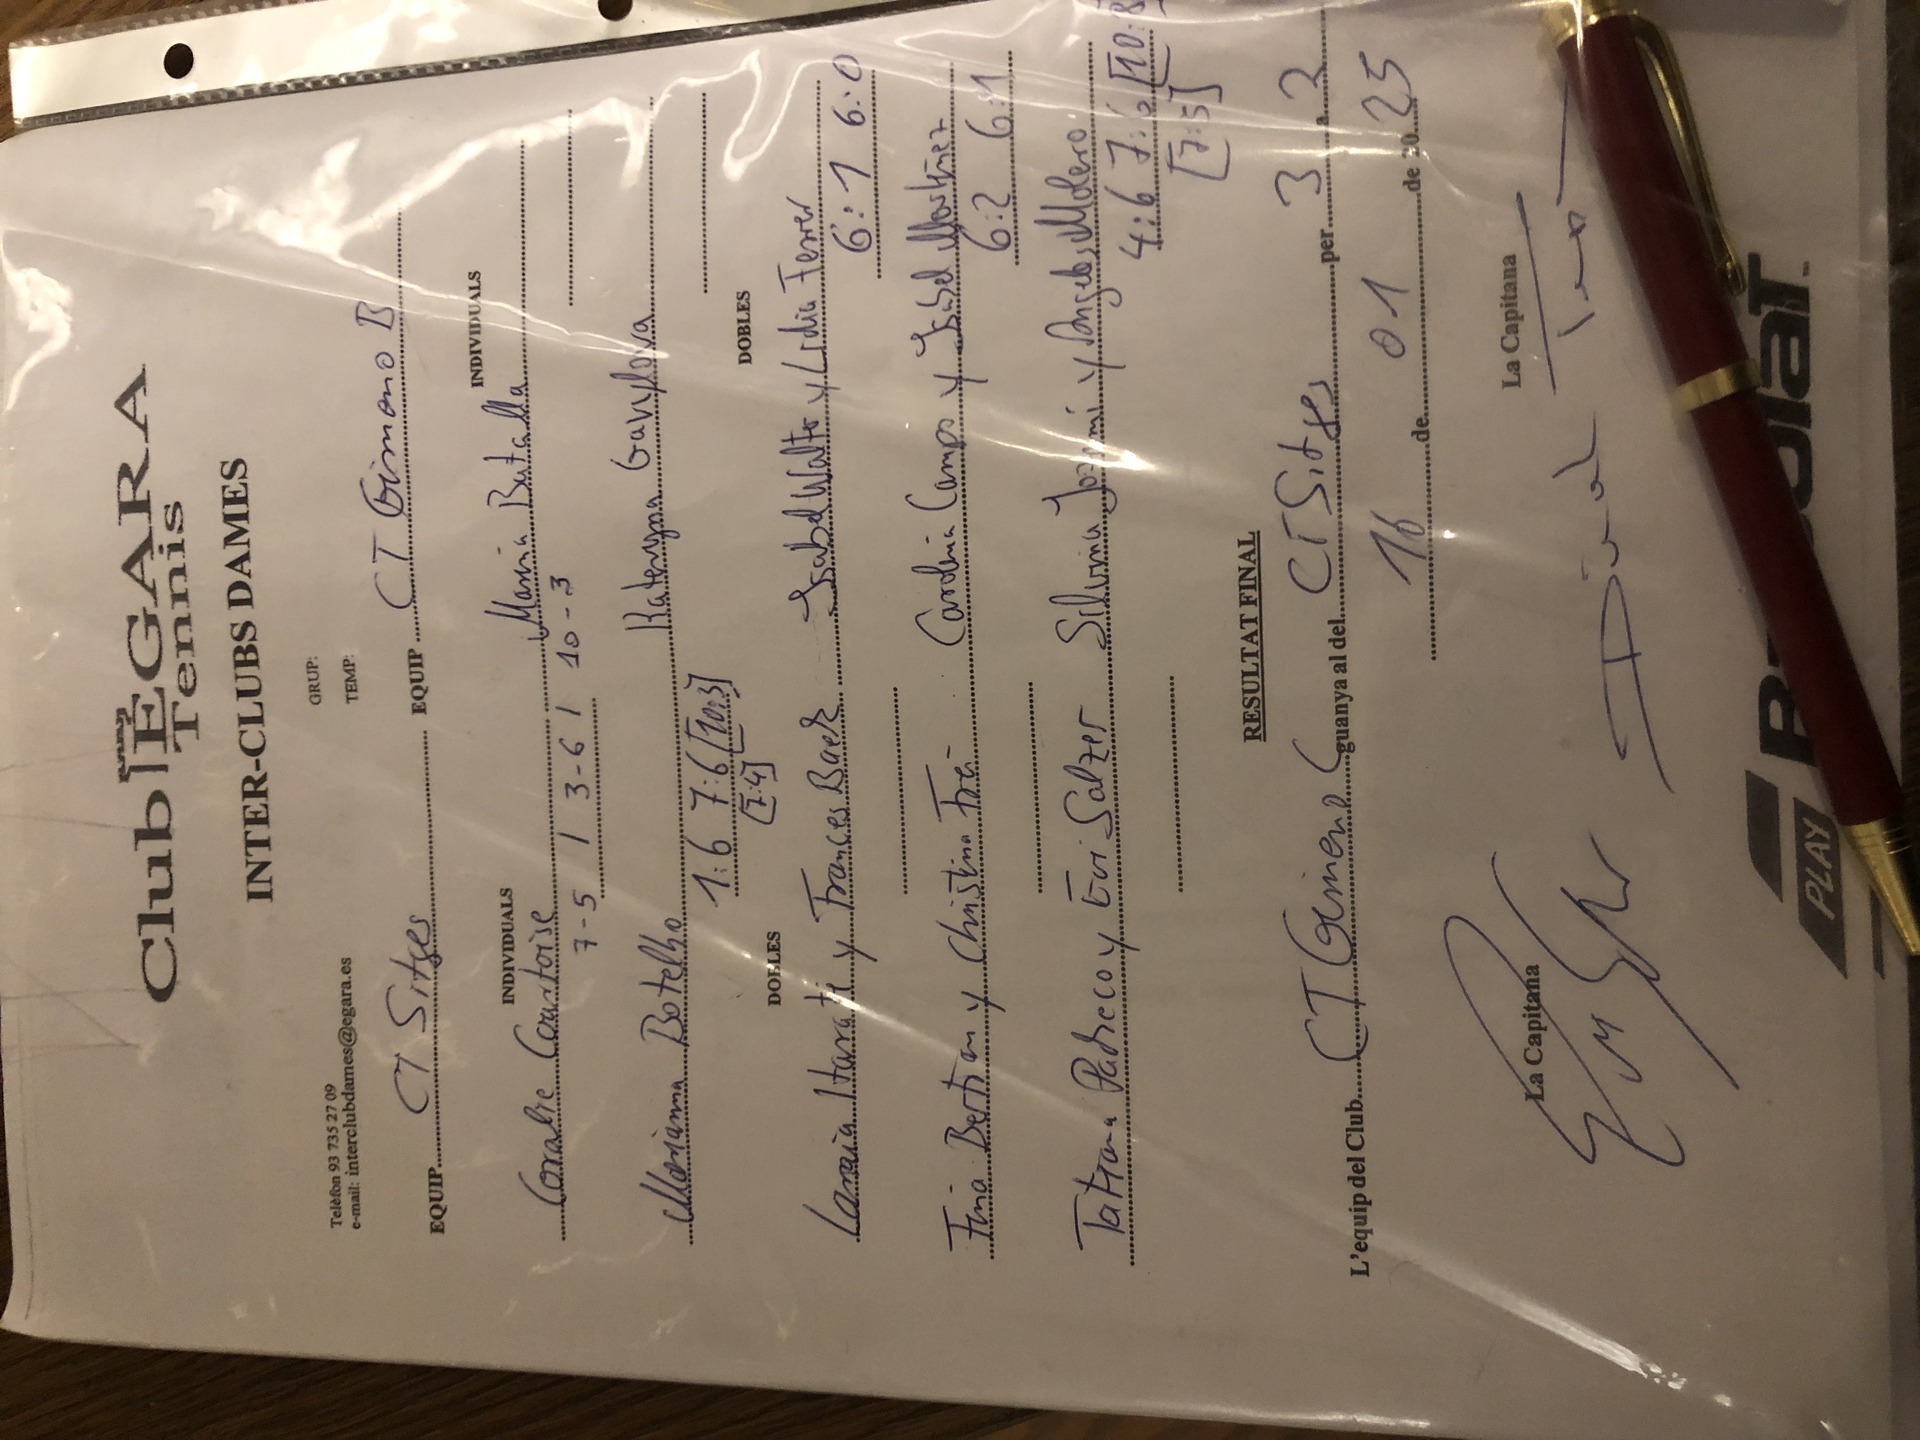 Club EGARA
Tennis
INTER-CLUBS DAMES
Telèfon 93 735 27 09
e-mail: interclubdames@egara.es
GRUP:
TEMP:
EQUIP CT Sitges EQUIP CT Gimeno B
INDIVIDUALS INDIVIDUALS
Coralie Courtoise Maria Butalla
7-5 / 3-6 / 10-3
Marianna Botelho Kateryna Gavylova
1:6 7:6 [10:3]
[7:4]
DOBLES DOBLES
y Frances Baer Isabel Walter y Lidia Ferrer
6:1 6:0
Fina Bertran y Christina Frei Carolina Campo y Isabel Martinez
6:2 6:1
Tatiana Pacheco y Evi Salzer Silvina y Angeles Molero
4:6 7:6 [10:8]
[7:5]
RESULTAT FINAL
L'equip del Club CT Gimeno guanya al del CT Sitges per 3 a 2
16 de 01 de 20 25
La Capitana La Capitana
PLAY